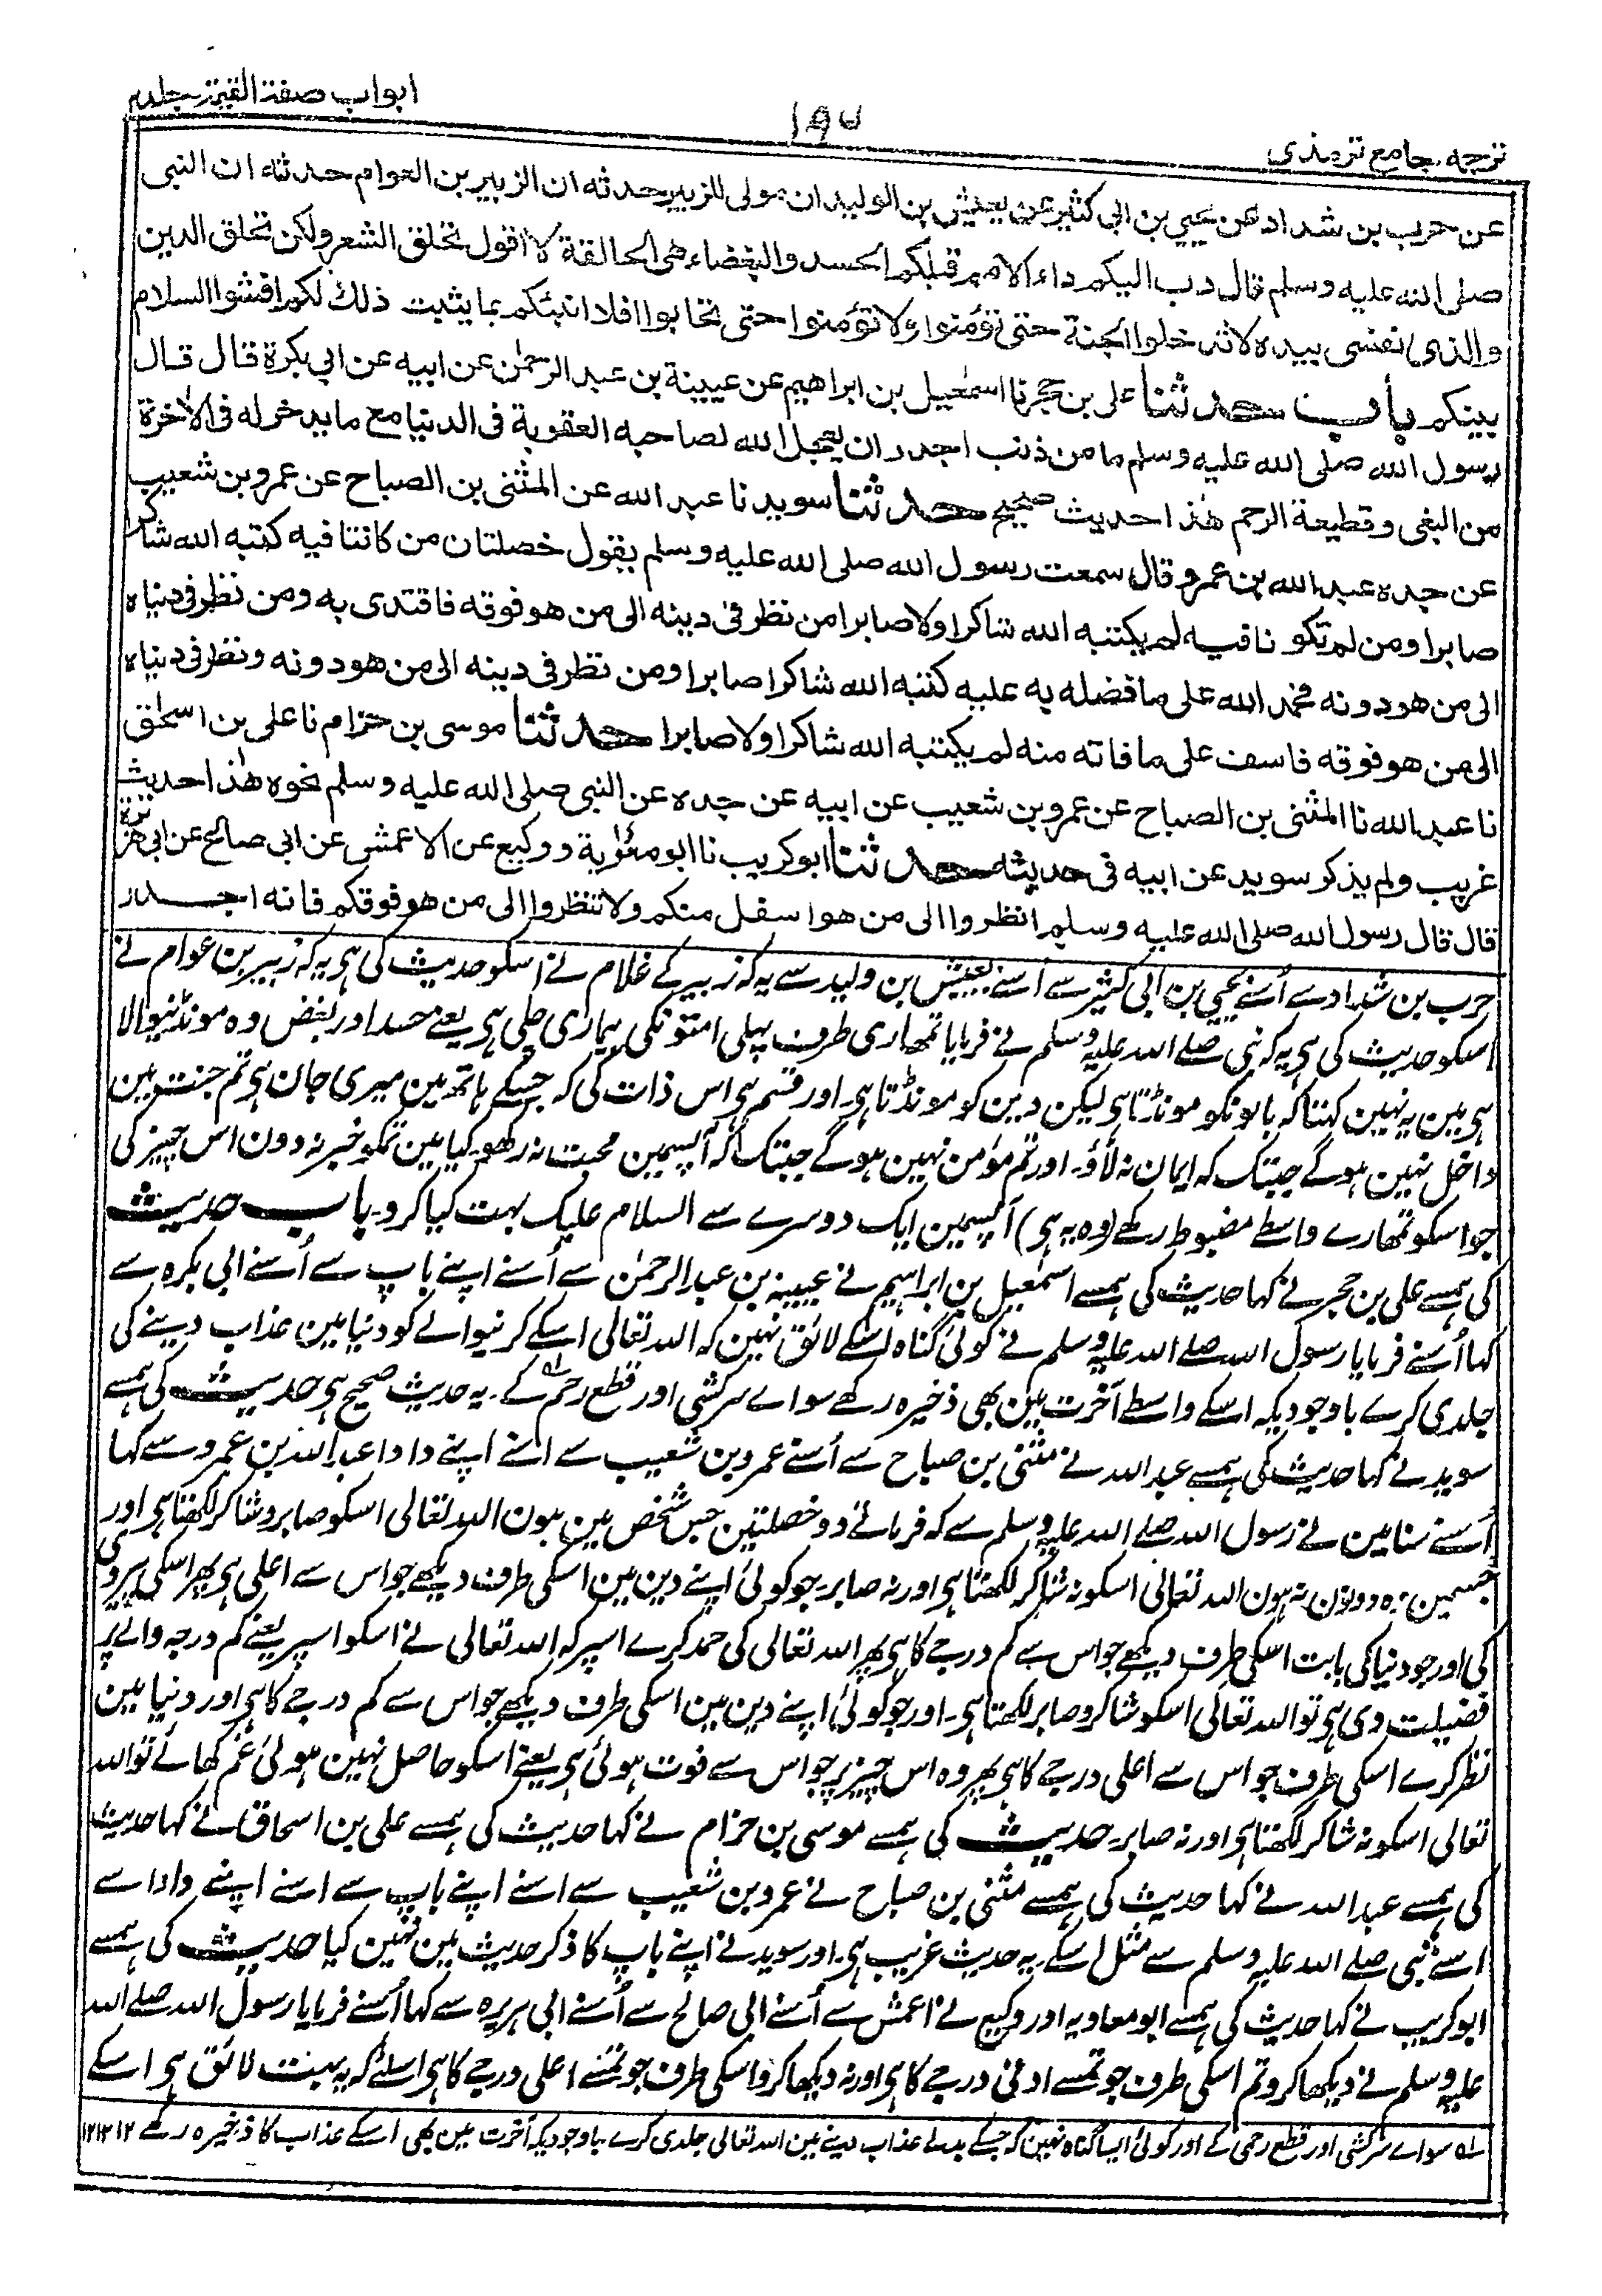 ترجمہ جامع ترمذی
ابواب صفۃ القیمۃ جلد
عن حرب بن شداد عن یحیی بن ابی کثیر عن یعیش بن الولید ان مولی للزبیر حدثه ان الزبیر بن العوام حدثه ان النبی
صلی الله علیه وسلم قال دب الیکم داء الامم قبلکم الحسد والبغضاء هی الحالقة لا اقول تحلق الشعر ولکن تحلق الدین
والذی نفسی بیده لا تدخلوا الجنة حتی تؤمنوا ولا تؤمنوا حتی تحابوا افلا انبئکم بما یثبت ذلك لکم افشوا السلام
بینکم باب حدثنا علی بن حجر نا اسمٰعیل بن ابراهیم عن عیینة بن عبد الرحمٰن عن ابیه عن ابی بکرة قال قال
رسول الله صلی الله علیه وسلم ما من ذنب اجدر ان یعجل الله لصاحبه العقوبة فی الدنیا مع ما یدخر له فی الاٰخرة
من البغی وقطیعة الرحم هٰذا حدیث صحیح حدثنا سوید نا عبد الله عن المثنی بن الصباح عن عمرو بن شعیب
عن جده عبد الله بن عمرو قال سمعت رسول الله صلی الله علیه وسلم یقول خصلتان من کانتا فیه کتبه الله شاکرا
صابرا ومن لم تکونا فیه لم یکتبه الله شاکرا ولا صابرا من نظر فی دینه الی من هو فوقه فاقتدی به ومن نظر فی دنیاه
الی من هو دونه فحمد الله علی ما فضله به علیه کتبه الله شاکرا صابرا ومن نظر فی دینه الی من هو دونه ونظر فی دنیاه
الی من هو فوقه فاسف علی ما فاته منه لم یکتبه الله شاکرا ولا صابرا حدثنا موسی بن حزام نا علی بن اسحٰق
نا عبد الله نا المثنی بن الصباح عن عمرو بن شعیب عن ابیه عن جده عن النبی صلی الله علیه وسلم نحوه هٰذا حدیث
غریب ولم یذکر سوید عن ابیه فی حدیثه حدثنا ابو کریب نا ابو معٰویة ووکیع عن الاعمش عن ابی صالح عن ابی هریرة
قال قال رسول الله صلی الله علیه وسلم انظروا الی من هو اسفل منکم ولا تنظروا الی من هو فوقکم فانه اجدر
حرب بن شداد سے اُسنے یحیی بن ابی کثیر سے اُسنے یعیش بن ولید سے یہ کہ زبیر کے غلام نے اسکو حدیث کی ہی یہ کہ زبیر بن عوام نے
اسکو حدیث کی ہی یہ کہ نبی صلے اللہ علیہ وسلم نے فرمایا تمھاری طرف پہلی امتونکی بیماری چلی ہی یعنے حسد اور بغض وہ مونڈنیوالا
ہی مین یہ نہین کہتا کہ بالونکو مونڈتا ہی لیکن دین کو مونڈتا ہی۔ اور قسم ہی اس ذات کی کہ جسکے ہاتھ مین میری جان ہی تم جنت مین
داخل نہین ہوگے جبتک کہ ایمان نہ لاؤ۔ اور تم مؤمن نہین ہوگے جبتک کہ آپسمین محبت نہ رکھو۔ کیا مین تمکو خبر نہ دون اس چیز کی
جو اسکو تمھارے واسطے مضبوط رکھے (وہ یہ ہی) آپسمین ایک دوسرے سے السلام علیک بہت کیا کرو۔ باب حدیث
کی ہمسے علی بن حجر نے کہا حدیث کی ہمسے اسمٰعیل بن ابراہیم نے عیینہ بن عبد الرحمٰن سے اُسنے اپنے باپ سے اُسنے ابی بکرہ سے
کہا اُسنے فرمایا رسول اللہ صلے اللہ علیہ وسلم نے کوئی گناہ اسکے لائق نہین کہ اللہ تعالی اسکے کرنیوالے کو دنیا مین عذاب دینے کی
جلدی کرے باوجودیکہ اسکے واسطے آخرت مین بھی ذخیرہ رکھے سواے سرکشی اور قطع رحم کے۔ یہ حدیث صحیح ہی حدیث کی ہمسے
سوید نے کہا حدیث کی ہمسے عبد اللہ نے مثنی بن صباح سے اُسنے عمرو بن شعیب سے اسنے اپنے دادا عبد اللہ بن عمرو سے کہا
اُسنے سنا مین نے رسول اللہ صلے اللہ علیہ وسلم سے کہ فرماتے دو خصلتین جس شخص مین ہون اللہ تعالی اسکو صابر و شاکر لکھتا ہی اور
جسمین یہ دونون نہ ہون اللہ تعالی اسکو نہ شاکر لکھتا ہی اور نہ صابر۔ جو کوئی اپنے دین مین اسکی طرف دیکھے جو اس سے اعلی ہی پھر اسکی پیروی
کی اور جو دنیا کی بابت اسکی طرف دیکھے جو اس سے کم درجے کا ہی پھر اللہ تعالی کی حمد کرے اسپر کہ اللہ تعالی نے اسکو اسپر یعنے کم درجہ والے پر
فضیلت دی ہی تو اللہ تعالی اسکو شاکر و صابر لکھتا ہی۔ اور جو کوئی اپنے دین مین اسکی طرف دیکھے جو اس سے کم درجے کا ہی اور دنیا مین
نظر کرے اسکی طرف جو اس سے اعلی درجے کا ہی پھر وہ اس چیز پر جو اس سے فوت ہوئی ہی یعنے اسکو حاصل نہین ہوئی غم کھائے تو اللہ
تعالی اسکو نہ شاکر لکھتا ہی اور نہ صابر۔ حدیث کی ہمسے موسی بن حزام نے کہا حدیث کی ہمسے علی بن اسحاق نے کہا حدیث
کی ہمسے عبد اللہ نے کہا حدیث کی ہمسے مثنی بن صباح نے عمرو بن شعیب سے اسنے اپنے باپ سے اسنے اپنے دادا سے
اسنے نبی صلے اللہ علیہ وسلم سے مثل اسکے۔ یہ حدیث غریب ہی۔ اور سوید نے اپنے باپ کا ذکر حدیث مین نہین کیا حدیث کی ہمسے
ابو کریب نے کہا حدیث کی ہمسے ابو معاویہ اور وکیع نے اعمش سے اُسنے ابی صالح سے اُسنے ابی ہریرہ سے کہا اُسنے فرمایا رسول اللہ صلے اللہ
علیہ وسلم نے دیکھا کرو تم اسکی طرف جو تمسے ادنی درجے کا ہی اور نہ دیکھا کرو اسکی طرف جو تمسے اعلی درجے کا ہی اسلئے کہ یہ بہت لائق ہی اسکے
سواے سرکشی اور قطع رحمی کے اور کوئی ایسا گناہ نہین کہ جسکے بدلے عذاب دینے مین اللہ تعالی جلدی کرے باوجودیکہ آخرت مین بھی اسکے عذاب کا ذخیرہ رکھے ۱۲